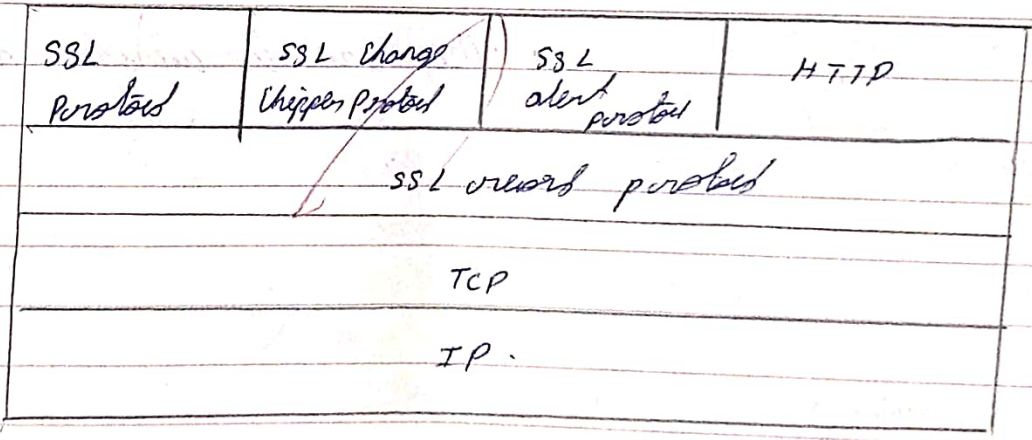 SSL
Protocol
SSL Change
Chipper Protocol
SSL
alert
protocol
HTTP
SSL record protocol
TCP
IP.